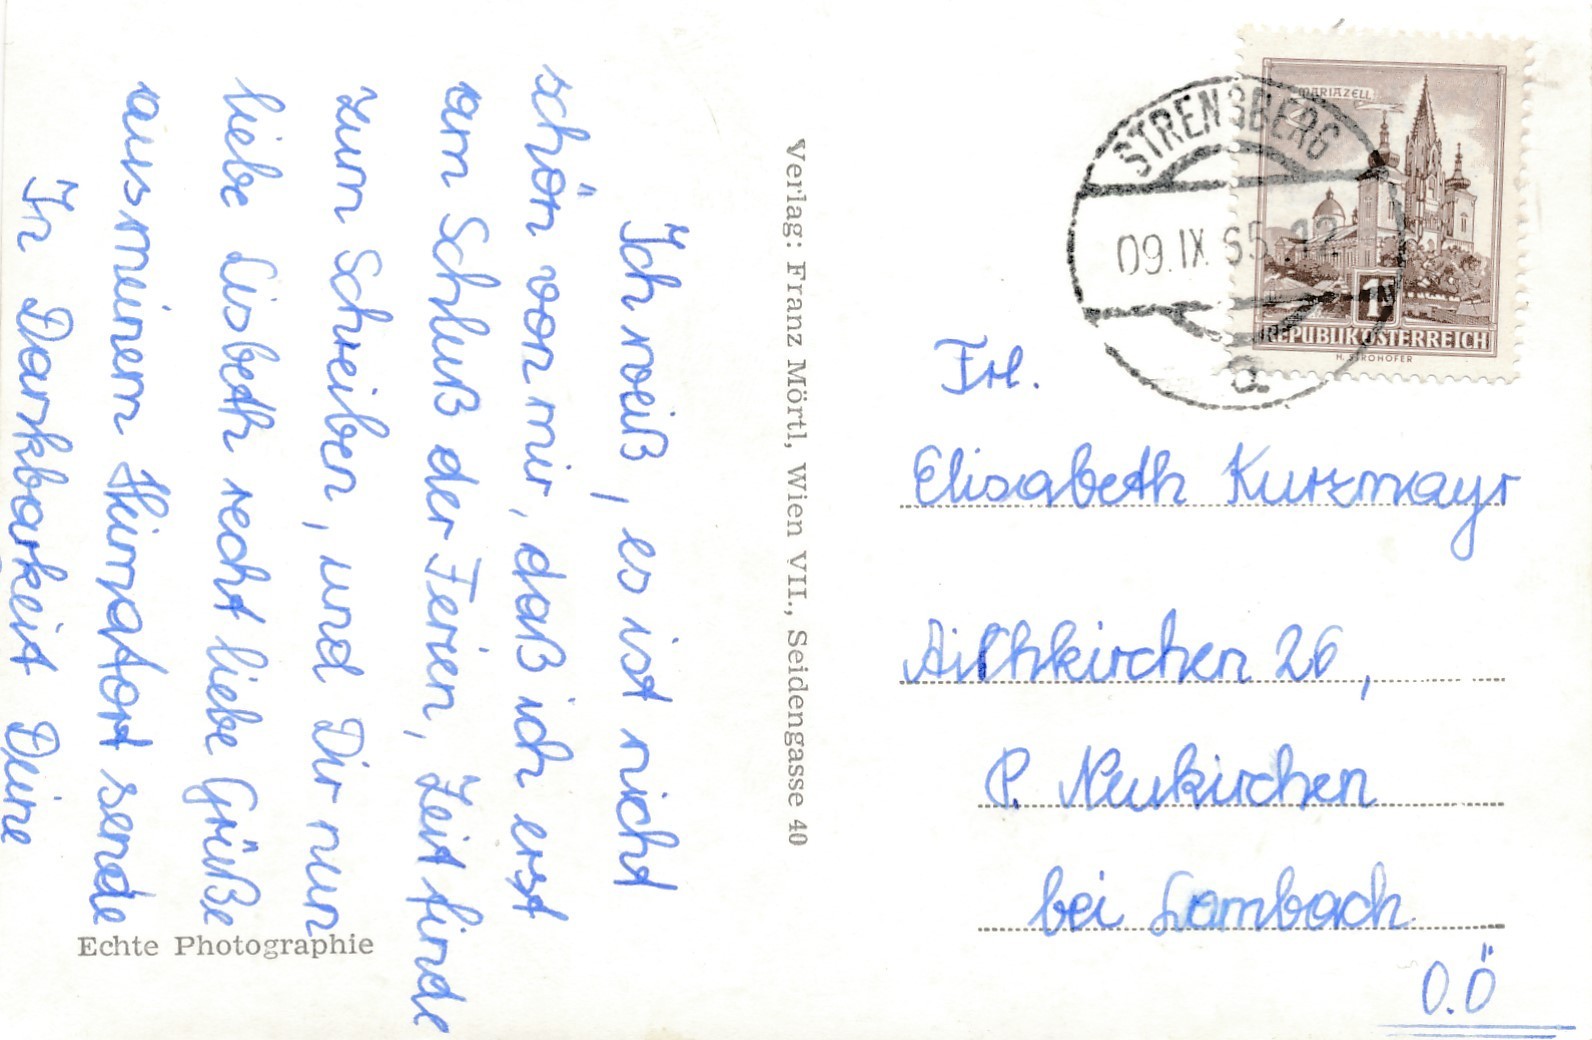 Ich weiß, es ist nicht
schön von mir, daß ich erst
am Schluß der Ferien, Zeit finde
zum Schreiben, und Dir nun
liebe Lisbeth recht liebe Grüße
aus meinem Heimatort sende
In Dankbarkeit Deine
Echte Photographie
Verlag: Franz Mörtl, Wien VII., Seidengasse 40
MARIAZELL
1S
REPUBLIK ÖSTERREICH
H. STROHOFER
STRENGBERG
09.IX 65.12
a
Frl.
Elisabeth Kurzmayr
Aichkirchen 26,
P. Neukirchen
bei Lambach
O.Ö